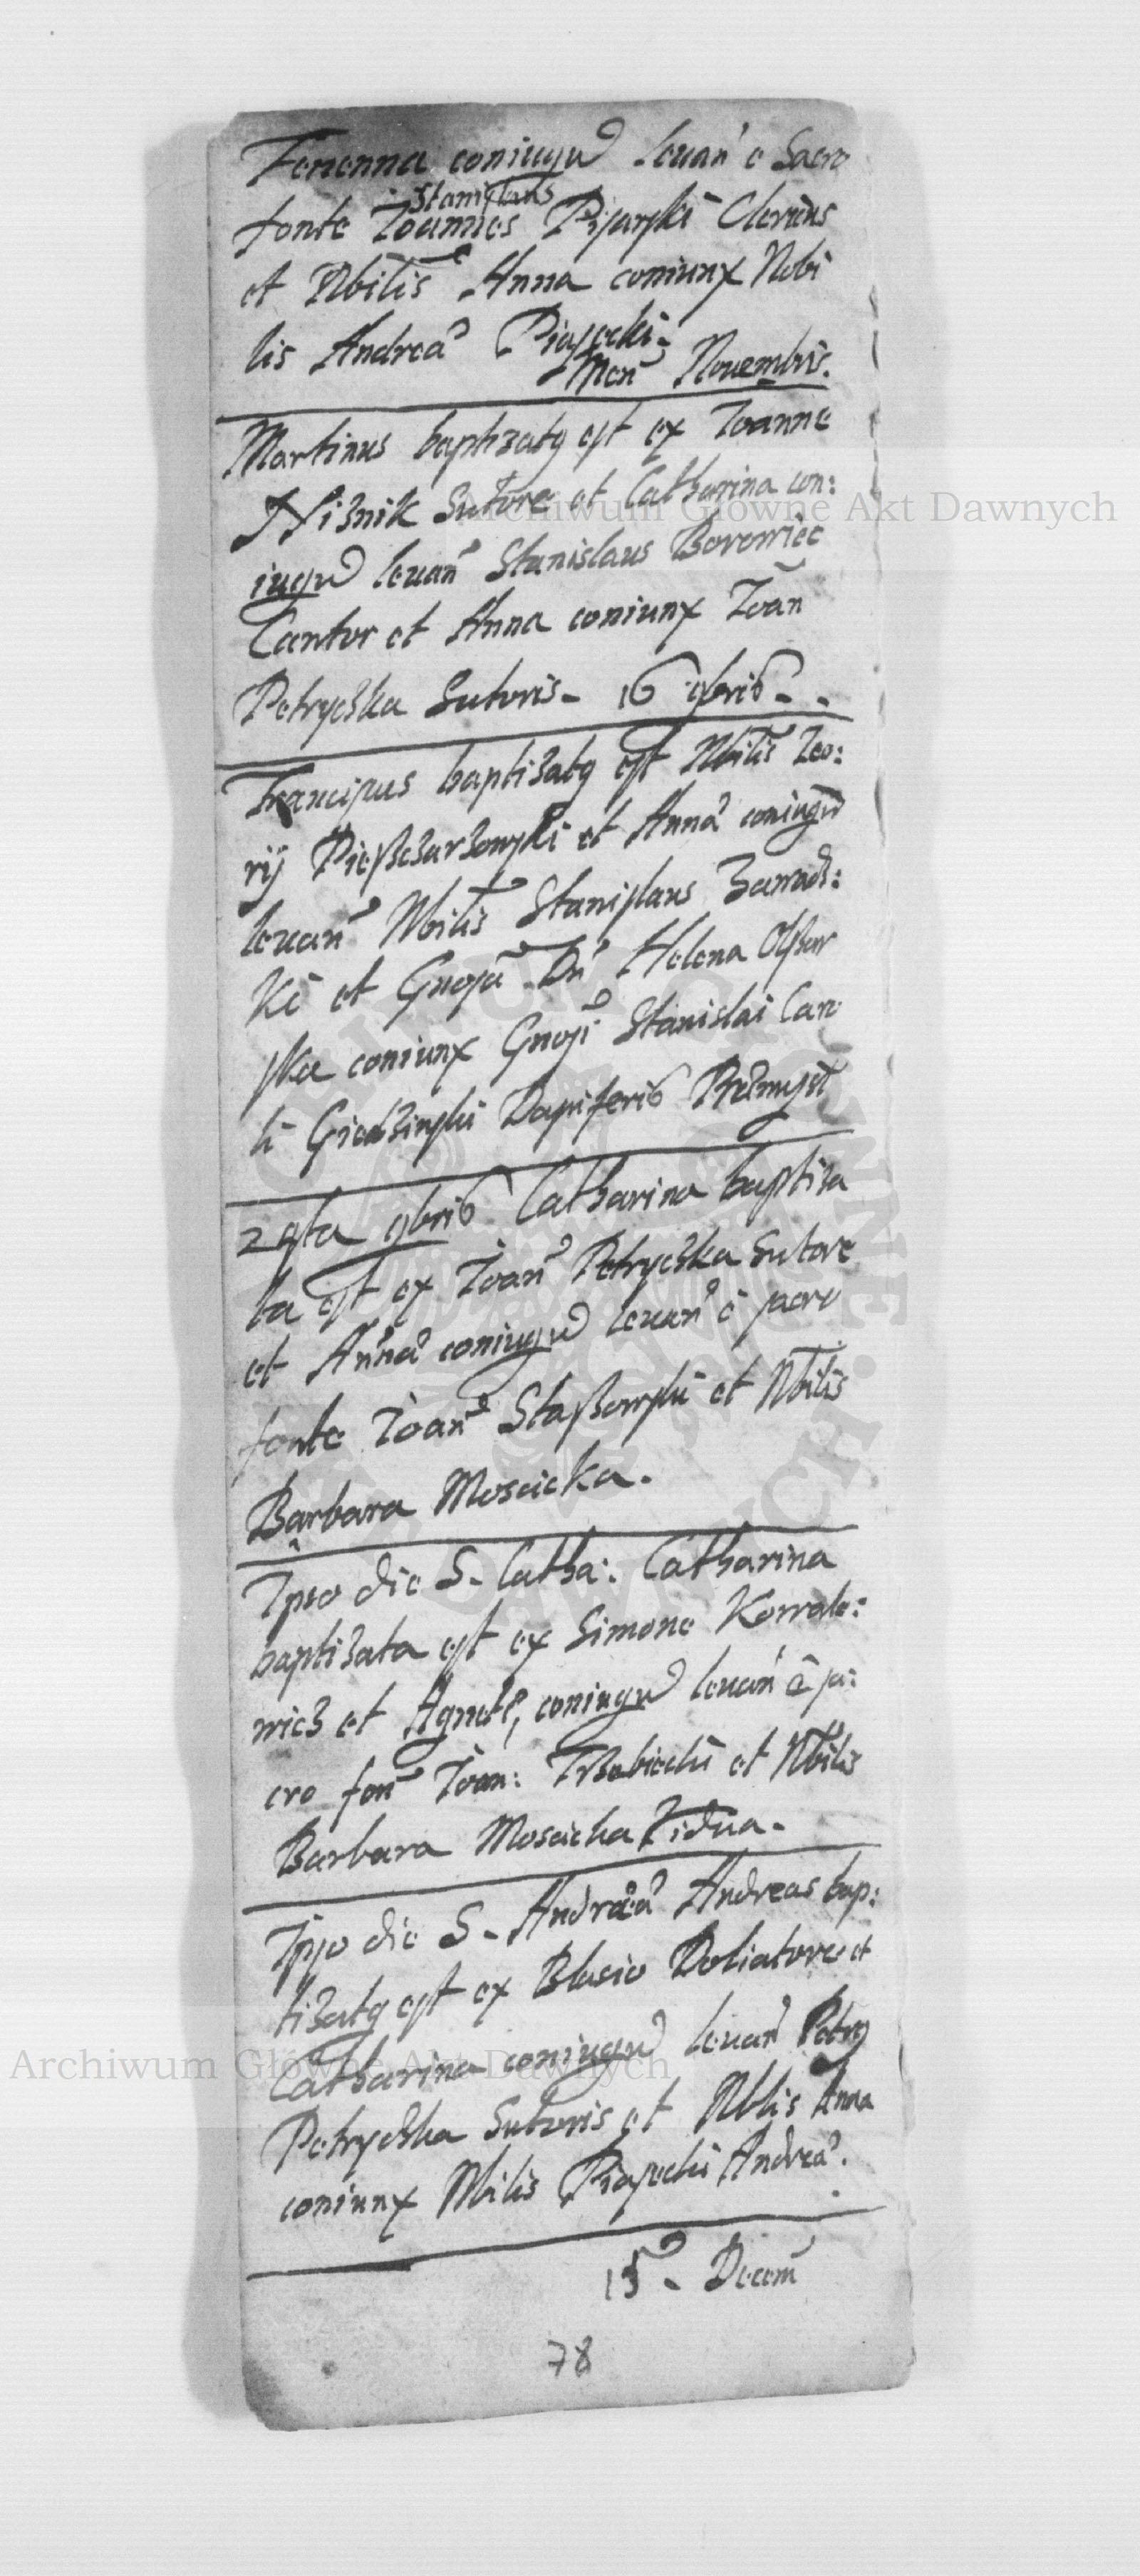 coniugu levan' e Sacro
Stanislaus
fonte Joannes Pisarski Clericus
et Nbilis Anna coniunx Nobi
lis Andrea Piasecki.
Men Novembris.
Martinus baptizatq est ex Joanne
Sutore et Catharina con:
iugu levan Stanislaus Borowiec
Cantor et Anna coniunx Joan
Petryczka Sutoris. 16 9bris.
Franciscus baptizatq est Nbilis
et Anna coniugu
levan Nbilis Stanislaus Zawadz:
ki et Gnosa Dn Helena
ska coniunx Gnosi Stanislai Caro
li Giedzinski Dapiferis
24ta 9bris Catharina baptiza
ta est ex Joan Petryczka Sutore
et Anna coniugu levan è sacro
fonte Joan Staszowski et Nbilis
Barbara Moscicka.
Ipso die S. Catha: Catharina
baptizata est ex Simone Kowale:
wicz et Agnete, coniugu levan è sa:
cro fon Joan: Trzebiecki et Nbilis
Barbara Moscicka Vidua.
Ipso die S. Andrea Andreas bap:
tizatq est ex Blasio Doliatore et
Catharina coniugu levan Petrq
Petryczka Sutoris et Nblis Anna
coniunx Nbilis Piasecki Andrea.
15 . Decem
78
Archiwum Główne Akt Dawnych
Archiwum Główne Akt Dawnych